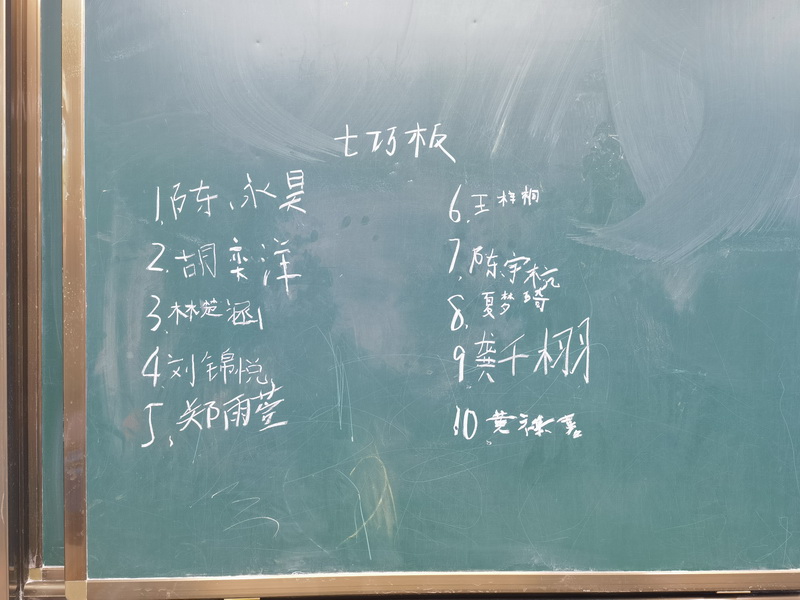 七巧板
1.陈永昊
2.胡栾洋
3.林楚涵
4刘锦悦
5.郑雨萱
6.王梓桐
7.陈宇杭
8.夏梦琦
9龚千栩
10黄